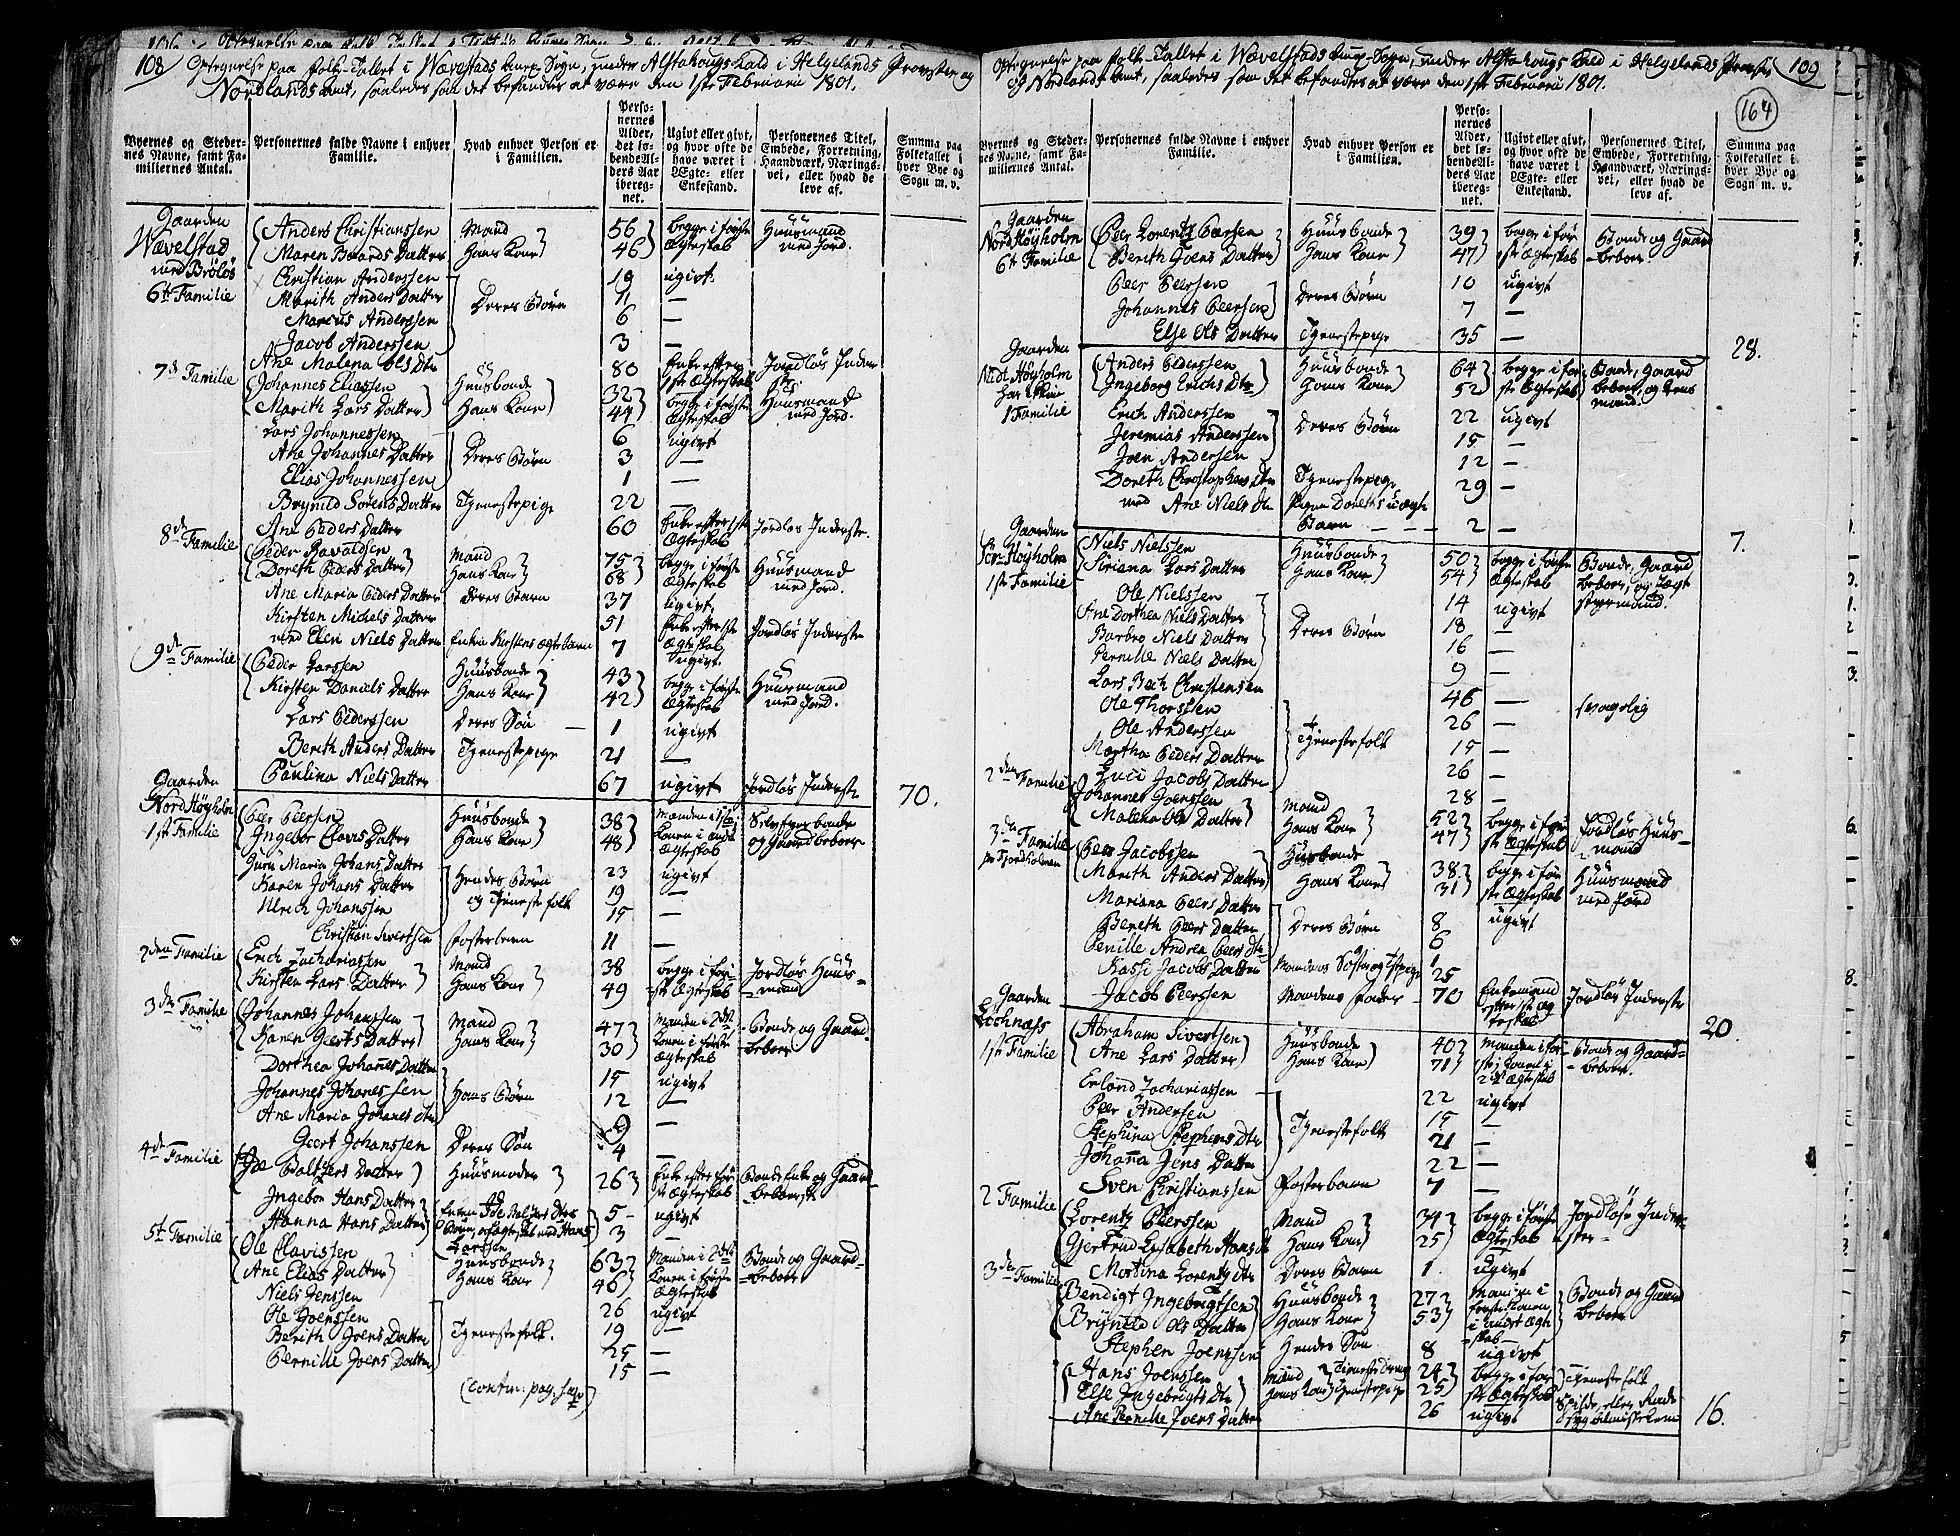 108 Optegnelse paa Folk-Tallet i Wævelstads Anex-Sogn, under Alstahougs Kald i Helgelands Provstie og
Nordlands Amt, saaledes som det befandtes at være den 1ste Februarii 1801.
Byernes og Stedernes Navne, samt Familiernes Antal.
Personernes fulde Navne i enhver Familie.
Hvad enhver Person er i Familien.
Personernes Alder, det løbende Alders Aar iberegnet.
Ugivt eller givt, og hvor ofte de have været i Ægte- eller Enkestand.
Personernes Titel, Embede, Forretning, Haandværk, Næringsvei, eller hvad de leve af.
Summa paa Folketallet i hver Bye og Sogn m. v.
Gaarden Wævelstad med Brøløs
6te Familie Anders Christianssen Mand 56 begge i første Ægteskab Huusmand med Jord.
Maren Baards Datter Hans Kone 46
Christian Anderssen Deres Børn 19 ugivt
Marith Anders Datter 11 —
Marcus Anderssen 6 —
Jacob Anderssen 3 —
Ane Malena Ols Dtr 80 Enke efter 1ste Ægteskab Jordløs Inderste
7de Familie Johannes Eliassen Huusbonde 32 begge i første Ægteskab Huusmand med Jord.
Marith Lars Datter Hans Kone 44
Lars Johannessen Deres Børn 6 ugivt
Ane Johannes Datter 3 —
Elias Johannessen 1 —
Brynild Sørens Datter Tjenestepige 22 —
Ane Peders Datter 60 Enke efter 1ste Ægteskab Jordløs Inderste.
8de Familie Peder Bavaldsen Mand 75 begge i første Ægteskab Huusmand med Jord.
Doreth Peders Datter Hans Kone 68
Ane Maria Peders Datter Deres Barn 37 ugivt
Kirsten Michels Datter 51 Enke efter 1ste Ægteskab Jordløs Inderste
med Elen Niels Datter Enken Kirstens ægte barn 7 Ugivt.
9de Familie Peder Larssen Huusbonde 43 begge i første Ægteskab Huusmand med Jord.
Kirsten Daniels Datter Hans Kone 42
Lars Pederssen Deres Søn 1 ugivt
Berith Anders Datter Tjenestepige 21 —
Paulina Niels Datter 67 ugivt Jordløs Inderste 70.
Gaarden Nord Høyholm
1ste Familie Peer Peersen Huusbonde 38 Manden i 1ste Konen i andet Ægteskab Selvejerbonde og Gaardbeboer
Ingebor Clavis Datter Hans Kone 48
Guru Maria Johans Datter Hendes Børn og Tjenestefolk 23 ugivt
Karen Johans Datter 19 —
Ulrich Johanssen 15 —
Christian Sivertsen Fosterbarn 11 —
2den Familie Erich Zachariassen Mand 38 begge i første Ægteskab Jordløs Huusmand
Kirsten Lars Datter Hans Kone 49
3die Familie Johannes Johanssen Mand 47 Manden i 2det Konen i første Ægteskab Bonde og Gaardbeboer
Karen Geerts Datter Hans Kone 30
Dorthea Johannes Datter Hans Børn 15 ugivt
Johannes Johannessen 12 —
Ane Maria Johannes Dtr 9 —
Geert Johanssen Deres Søn 4 —
4de Familie Ide Baltzers Datter Huusmoder 26 Enke efter første Ægteskab Bonde Enke og Gaardbeboerske
Ingebor Hans Datter 5 ugivt
Hanna Hans Datter 3 —
5te Familie Ole Clavissen Huusbonde 63 Manden i 2det Konen i første Ægteskab Bonde og Gaardbeboer
Ane Elias Datter Hans Kone 46
Niels Jenssen Tjenestefolk. 26 ugivt
Ole Joenssen 19 —
Berith Joens Datter 25 —
Pernille Joens Datter 15 —
Optegnelse paa Folk-Tallet i Wævelstads Anex-Sogn, under Alstahougs Kald i Helgelands Provstie 109
og Nordlands Amt, saaledes som det befandtes at være den 1ste Februarii 1801.
164
Byernes og Stedernes Navne, samt Familiernes Antal.
Personernes fulde Navne i enhver Familie.
Hvad enhver Person er i Familien.
Personernes Alder, det løbende Alders Aar iberegnet.
Ugivt eller givt, og hvor ofte de have været i Ægte- eller Enkestand.
Personernes Titel, Embede, Forretning, Haandværk, Næringsvei, eller hvad de leve af.
Summa paa Folketallet i hver Bye og Sogn m. v.
Gaarden Nord Høyholm
6te Familie Peer Lorentz Peersen Huusbonde 39 begge i første Ægteskab Bonde og Gaardbeboer.
Berith Joens Datter Hans Kone 47
Peer Peersen Deres Børn 10 ugivt
Johannes Peersen 7 —
Else Ols Datter Tjenestepige 35 — 28.
Gaarden Midt Høyholm har ikkun
1 Familie Anders Pederssen Huusbonde 64 begge i første Ægteskab Bonde, Gaardbeboer, og Lensmand.
Ingeborg Erichs Dtr Hans Kone 52
Erich Anderssen Deres Børn 22 ugivt
Jeremias Anderssen 15 —
Joen Andersen 12 —
Doreth Christophers Dtr Tjenestepige 29 —
med Ane Niels Dtr Pigen Doreths uægte Barn 2 — 7.
Gaarden Sør-Høyholm
1ste Familie Niels Nielssen Huusbonde 50 begge i første Ægteskab Bonde, Gaardbeboer, og Jægtstyrmand.
Siriana Lars Datter Hans Kone 54
Ole Nielssen Deres Børn 14 ugivt
Ane Dorthea Niels Datter 18 —
Barbro Niels Datter 16 —
Pernille Niels Datter 9 —
Lars Bech Christensen 46 — svagelig
Ole Thorssen Tjenestefolk 26 —
Ole Anderssen 15 —
Martha Peders Datter 26 —
Luci Jacobs Datter 28 —
2den Familie Johannes Joenssen Mand 52 begge i første Ægteskab Jordløs Huusmand
Malena Ols Datter Hans Kone 47
3die Familie Peer Jacobssen Huusbonde 38 begge i første Ægteskab Huusmand med Jord
Marith Anders Datter Hans Kone 31
Mariana Peers Datter Deres Børn 8 ugivt
Bereth Peers Datter 6
Pernille Andrea Peers Dtr 1
Kassi Jacobs Datter Mandens Søster og Tjenstepige 25
Jacob Peerssen Mandens Fader 70 Enkemand efter 1ste Ægteskab Jordløs Inderste 20.
Gaarden
1ste Familie Abraham Sivertsen Huusbonde 40 Manden i første, Konen i 2det Ægteskab Bonde og Gaardbeboer
Ane Lars Datter Hans Kone 71
Erland Zachariassen Tjenestefolk 22 ugivt
Peer Andersen 15 —
Stephina Stephens Dtr 21 —
Johanna Jens Datter 22 —
Sven Christianssen Fosterbarn 7 —
2 Familie Lorentz Peerssen Mand 34 begge i første Ægteskab Jordløse Inderster
Gjertrud Elisabeth Hans Dtr Hans Kone 25
Martina Lorentz Dtr Deres Barn 1 ugivt
3die Familie Bendigt Ingebrigtsen Huusbonde 27 Manden i første Konen i andet Ægteskab Bonde og Gaardbeboer
Brynild Ols Datter Hans Kone 53
Stephen Joenssen Hendes Søn 8 ugivt
Hans Joenssen Mand Tjeneste Dreng 24 begge i første Ægteskab Tjenestefolk
Else Ingebrigts Dtr Hans Kone Tjenestepige 25
Ane Pernille Joens Datter 26 ugivt 16.